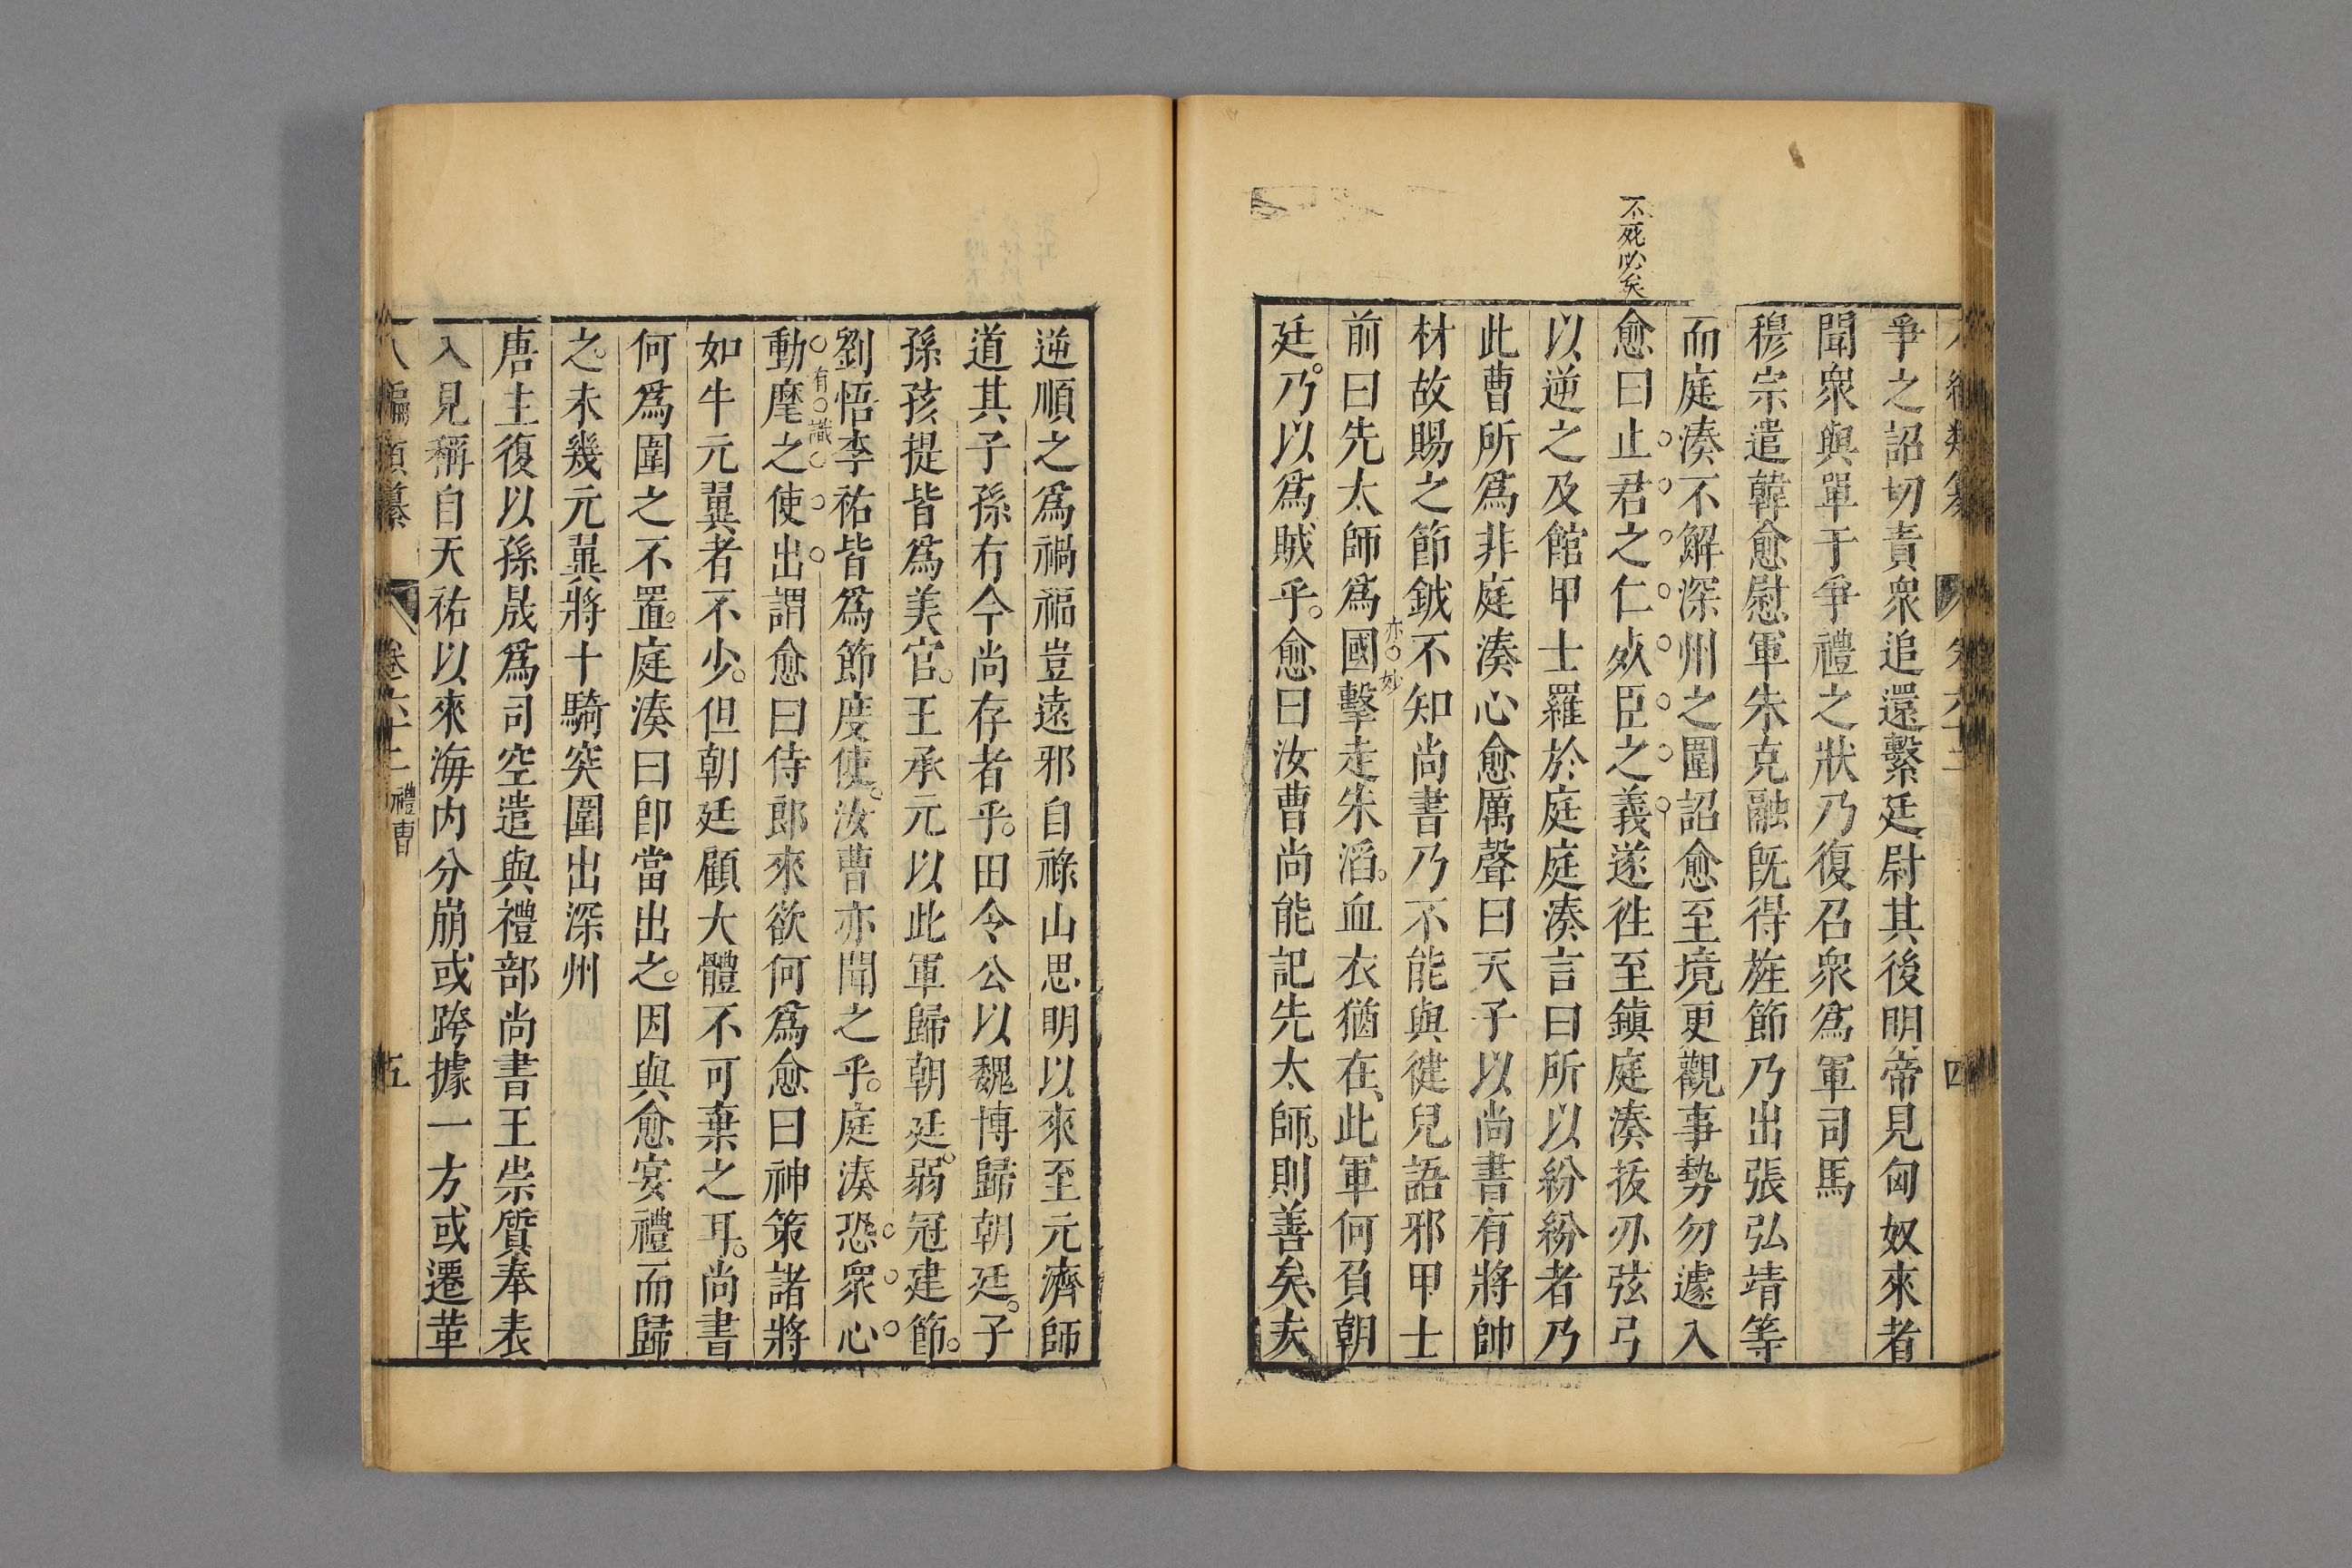 不死必矣
爭之詔切責衆追還繫廷尉其後明帝見匈奴來者
聞衆與單于爭禮之狀乃復召衆爲軍司馬
穆宗遣韓愈慰軍朱克融旣得旌節乃出張弘靖等
而庭湊不解深州之圍詔愈至境更觀事勢勿遽入
愈曰止君之仁死臣之義遂徃至鎮庭湊拔刃弦弓
以逆之及館甲士羅於庭庭湊言曰所以紛紛者乃
此曹所爲非庭湊心愈厲聲曰天子以尚書有將帥
材故賜之節鉞不知尚書乃不能與健兒語邪甲士
亦妙
前曰先太師爲國擊走朱滔。血衣猶在、此軍何負朝
廷。乃以爲賊乎。愈曰汝曹尚能記先太師。則善矣、夫
逆順之爲禍福豈遠邪自祿山思明以來至元濟師
道其子孫有今尚存者乎。田令公以魏博歸朝廷。子
孫孩提皆爲美官。王承元以此軍歸朝廷。弱冠建節。
劉悟李祐皆爲節度使。汝曹亦聞之乎。庭湊恐衆心
有識
動麾之使出謂愈曰侍郎來欲何爲愈曰神策諸將
如牛元翼者不少。但朝廷顧大體不可棄之耳。尚書
何爲圍之不置。庭湊曰卽當出之。因與愈宴禮而歸
之。未幾元翼將十騎突圍出深州
唐主復以孫晟爲司空遣與禮部尚書王崇質奉表
入見稱自天祐以來海内分崩或跨據一方、或遷革
八編類纂 卷六十二 禮曹 五